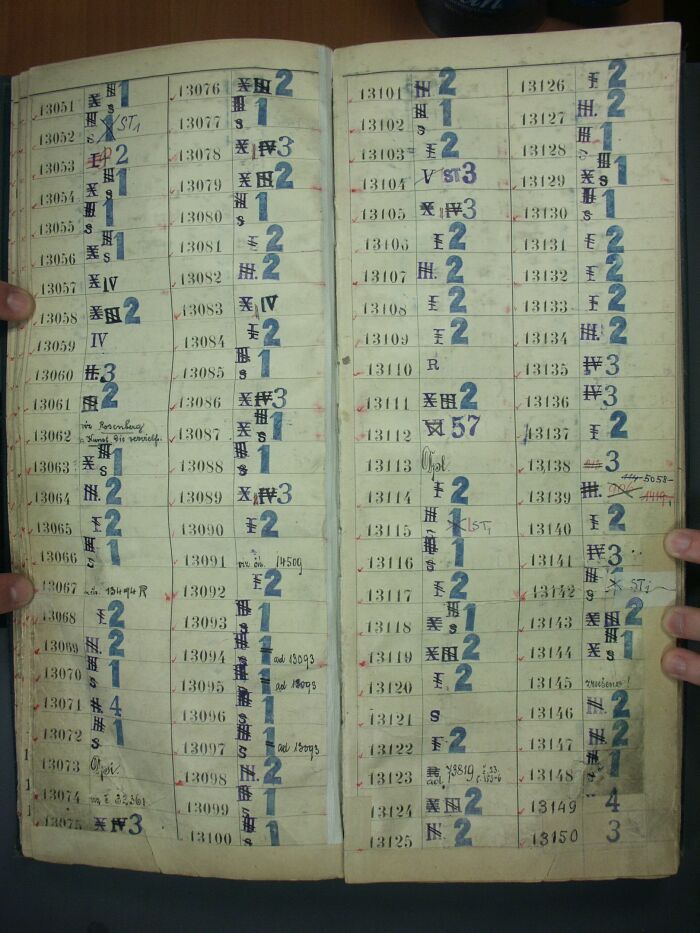 13051 X III S 1
13052 III S 1 X ST1
13053 I 2
13054 X III S 1
13055 III S 1
13056 X III S 1
13057 X IV
13058 X III 2
13059 IV
13060 II. 3
13061 III 2
13062 viz Rosenberg
13063 X III S 1
13064 III. 2
13065 I 2
13066 III S 1
13067 13494 R
13068 I 2
13069 III. 2
13070 III S 1
13071 II. 4
13072 III S 1
13073
13074 viz 32361
13075 X IV 3
13076 X III 2
13077 III S 1
13078 X IV 3
13079 X III 2
13080 III S 1
13081 I 2
13082 III. 2
13083 X IV
13084 I 2
13085 III S 1
13086 X IV 3
13087 X III S 1
13088 III S 1
13089 X IV 3
13090 I 2
13091 viz 14509
13092 I 2
13093 III S 1
13094 III S 1 ad 13093
13095 III S 1 ad 13093
13096 III S 1
13097 III S 1 ad 13093
13098 III. 2
13099 III S 1
13100 III S 1
13101 III 2
13102 III S 1
13103 I 2
13104 V ST 3
13105 X IV 3
13106 I 2
13107 III. 2
13108 I 2
13109 I 2
13110 R
13111 X III 2
13112 57
13113
13114 I 2
13115 III 1 X ST1
13116 III S 1
13117 I 2
13118 X III S 1
13119 X III 2
13120 I 2
13121 S
13122 I 2
13123 73819
13124 X III 2
13125 III. 2
13126 I 2
13127 III. 2
13128 III S 1
13129 X III S 1
13130 III S 1
13131 I 2
13132 I 2
13133 I 2
13134 III. 2
13135 IV 3
13136 IV 3
13137 I 2
13138 3
13139 III. 5058
13140 I 2
13141 IV 3
13142 III S X ST1
13143 X III 2
13144 X III S 1
13145 zrušeno!
13146 III. 2
13147 III. 2
13148 III S 1
13149 4
13150 3